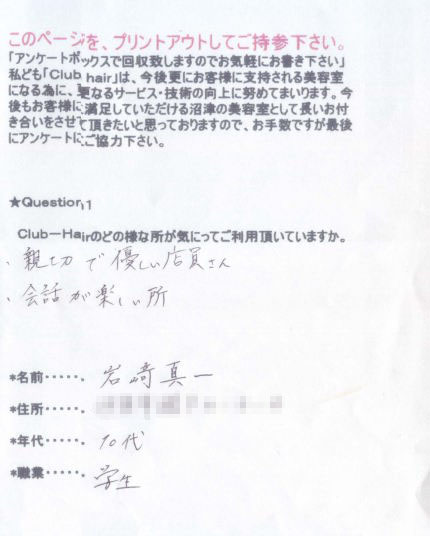 このページを、プリントアウトしてご持参下さい。
「アンケートボックスで回収致しますのでお気軽にお書き下さい」
私ども「Club hair」は、今後更にお客様に支持される美容室
になる為に、更なるサービス・技術の向上に努めてまいります。今
後もお客様に満足していただける沼津の美容室として長いお付
き合いをさせて頂きたいと思っておりますので、お手数ですが最後
にアンケートにご協力下さい。
★Question1
Club－Hairのどの様な所が気にってご利用頂いていますか。
・親切で優しい店員さん
・会話が楽しい所
*名前・・・・・. 岩崎真一
*住所・・・・・.
*年代・・・・・. 10代
*職業・・・・・. 学生